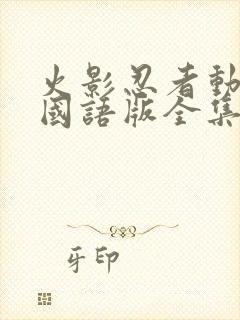 火影忍者動
國語版全集
牙印